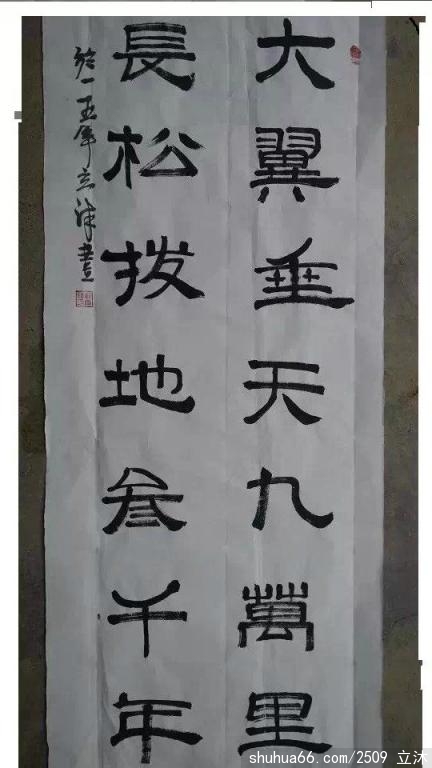 大翼垂天九萬里
長松拔地叁千年
於一五年立沐書
shuhua66.com/2509 立沐